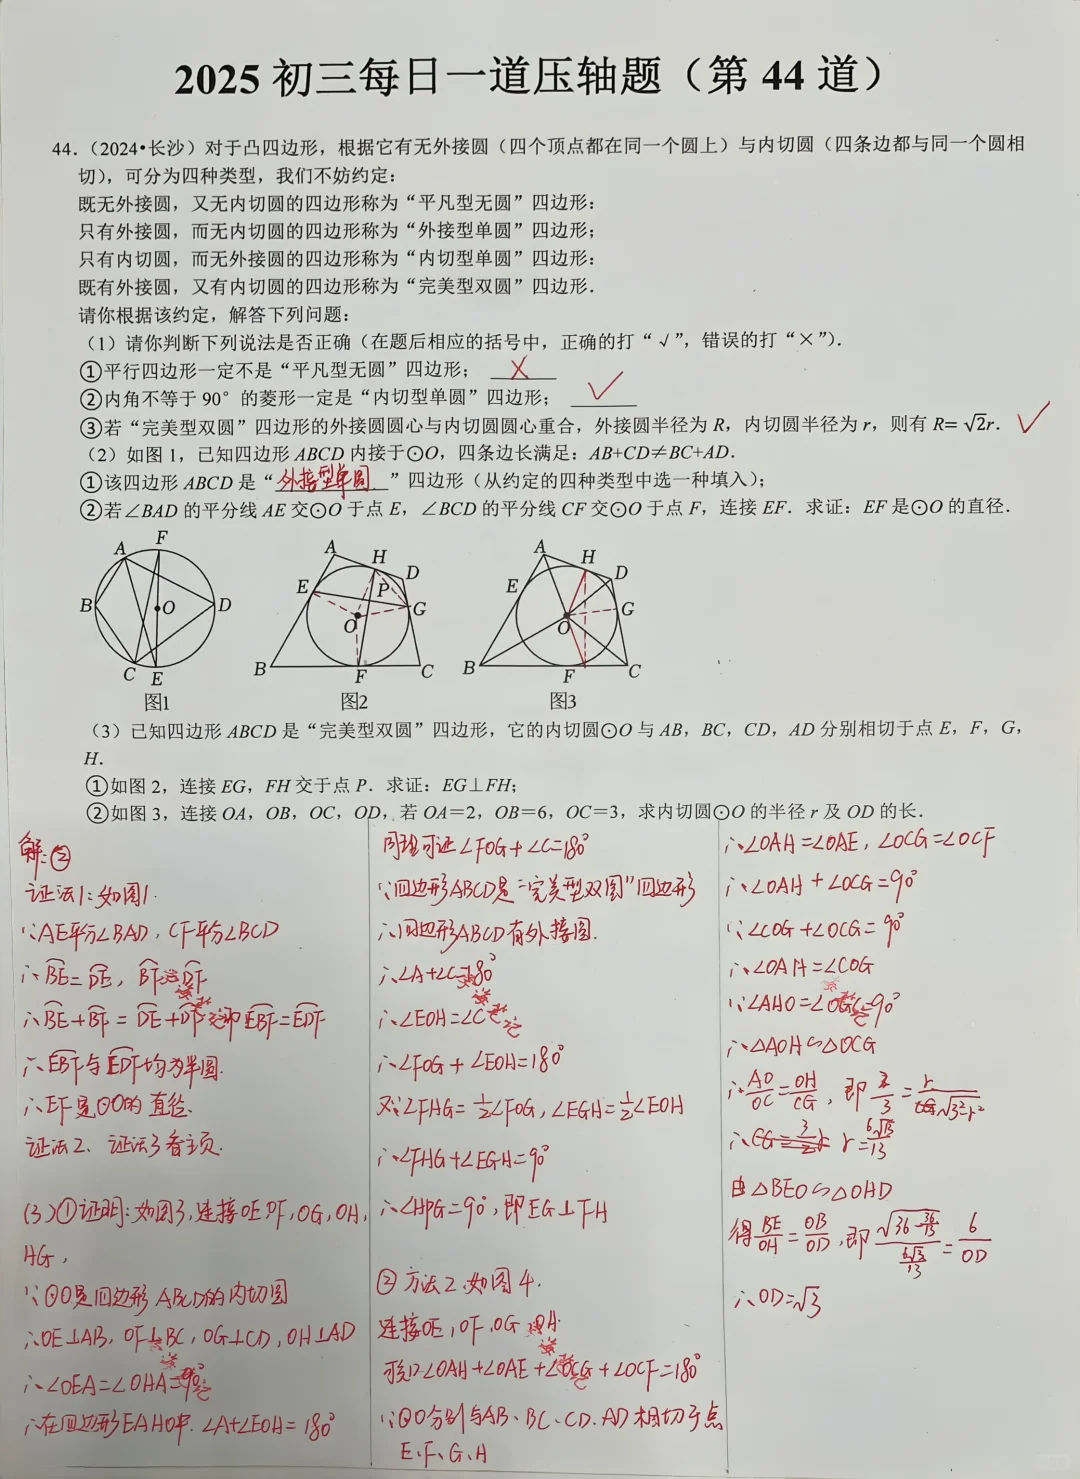 2025 初三每日一道压轴题（第 44 道）
44．（2024•长沙）对于凸四边形，根据它有无外接圆（四个顶点都在同一个圆上）与内切圆（四条边都与同一个圆相
切），可分为四种类型，我们不妨约定：
既无外接圆，又无内切圆的四边形称为“平凡型无圆”四边形：
只有外接圆，而无内切圆的四边形称为“外接型单圆”四边形；
只有内切圆，而无外接圆的四边形称为“内切型单圆”四边形：
既有外接圆，又有内切圆的四边形称为“完美型双圆”四边形．
请你根据该约定，解答下列问题：
（1）请你判断下列说法是否正确（在题后相应的括号中，正确的打“√”，错误的打“×”）．
①平行四边形一定不是“平凡型无圆”四边形； ×
②内角不等于 90°的菱形一定是“内切型单圆”四边形； ✓
③若“完美型双圆”四边形的外接圆圆心与内切圆圆心重合，外接圆半径为 R，内切圆半径为 r，则有 R=√2r． ✓
（2）如图 1，已知四边形 ABCD 内接于⊙O，四条边长满足：AB+CD≠BC+AD．
①该四边形 ABCD 是“ 外接型单圆 ”四边形（从约定的四种类型中选一种填入）；
②若∠BAD 的平分线 AE 交⊙O 于点 E，∠BCD 的平分线 CF 交⊙O 于点 F，连接 EF．求证：EF 是⊙O 的直径．
A F B O D C E
图1
A H D E P G O B F C
图2
A H D E G O B F C
图3
（3）已知四边形 ABCD 是“完美型双圆”四边形，它的内切圆⊙O 与 AB，BC，CD，AD 分别相切于点 E，F，G，
H．
①如图 2，连接 EG，FH 交于点 P．求证：EG⊥FH；
②如图 3，连接 OA，OB，OC，OD，若 OA＝2，OB＝6，OC＝3，求内切圆⊙O 的半径 r 及 OD 的长．
解：②
证法1：如图1.
∵AE平分∠BAD，CF平分∠BCD
∴BE=DE，BF=DF
∴BE+BF=DE+DF 即EBF=EDF
∴EBF与EDF均为半圆.
∴EF是⊙O的直径.
证法2、证法3看主页.
(3)①证明：如图3,连接OE,OF,OG,OH,
HG，
∵⊙O是四边形ABCD的内切圆
∴OE⊥AB，OF⊥BC，OG⊥CD，OH⊥AD
∴∠OEA=∠OHA=90°
∴在四边形EAHO中.∠A+∠EOH=180°
同理可证∠FOG+∠C=180°
∵四边形ABCD是“完美型双圆”四边形
∴四边形ABCD有外接圆.
∴∠A+∠C=180°
∴∠EOH=∠C
∴∠FOG+∠EOH=180°
又∵∠FHG=1/2∠FOG，∠EGH=1/2∠EOH
∴∠FHG+∠EGH=90°
∴∠HPG=90°，即EG⊥FH
② 方法2.如图4.
连接OE,OF,OG,OH.
∴∠OAH+∠OAE+∠OCG+∠OCF=180°
∵⊙O分别与AB、BC、CD、AD相切于点
E、F、G、H
∴∠OAH=∠OAE，∠OCG=∠OCF
∴∠OAH+∠OCG=90°
∵∠COG+∠OCG=90°
∴∠OAH=∠COG
∵∠AHO=∠OGC=90°
∴△AOH∽△OCG
∴AO/OC=OH/CG，即2/3=r/√3²-r²
∴ r=6√13/13
由△BEO∽△OHD
得BE/OH=OB/OD,即√36-36/13/6√13/13=6/OD
∴OD=√3